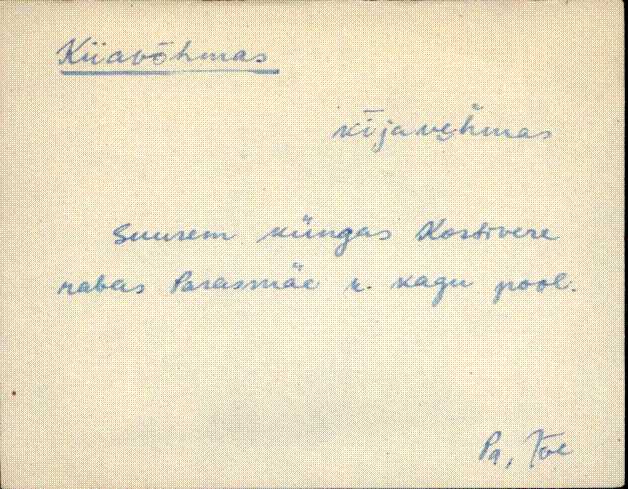 Kiiavõhmas
kījave̮h̆mas
Suurem küngas Kostivere
rabas Parasmäe k. kagu pool.
Pa, Jõe